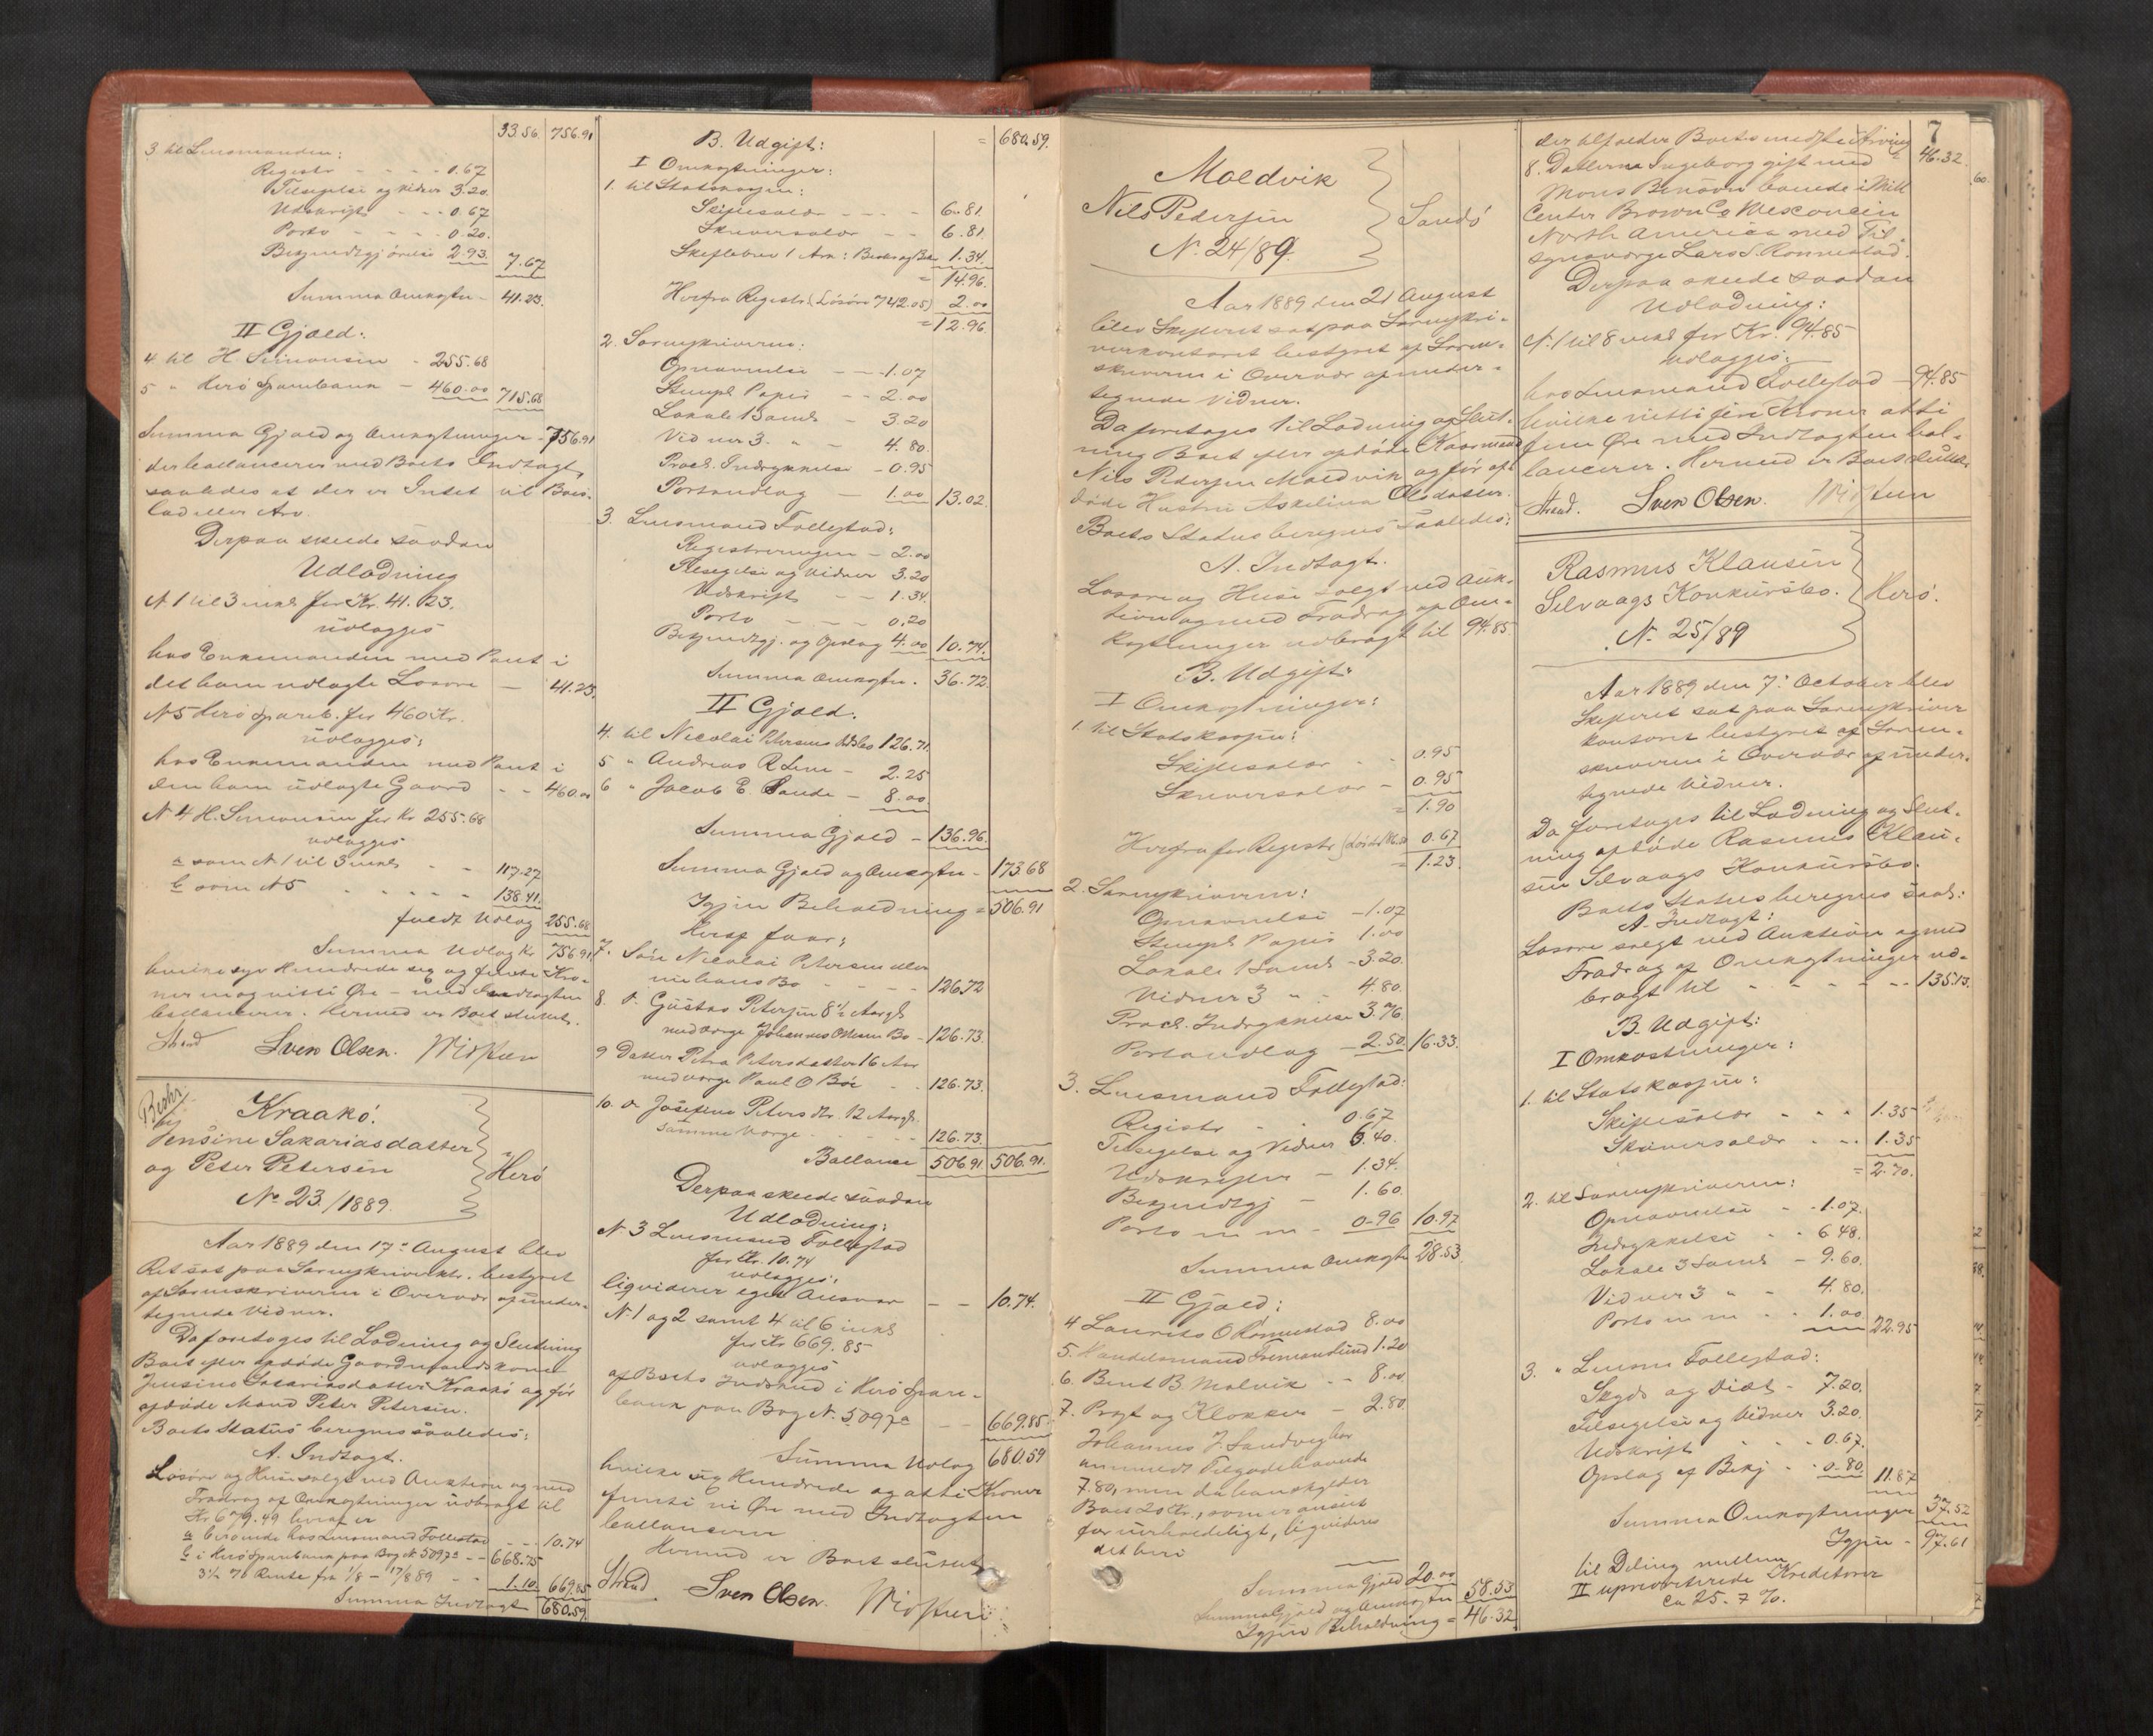 33.56. 756.91
3. til Lensmanden:
Registr - - - 0.67
Tilsigelse og Vidner 3.20.
Udskrift - - - 0.67
Porto - - - - 0.20.
Bekjendtgjörelse 2.93. 7.67
Summa Omkostn - 41.23.
II Gjæld:
4 til H. Simonsen - 255.68
5 " Herö Sparebank - 460.00 715.68
Summa Gjæld og Omkostninger - 756.91
der ballancerer med Boets Indtægt
saaledes at der er Intet til Boes-
lod eller Arv.
Derpaa skeede saadan
Udlodning
N 1 til 3 incl for Kr. 41.23.
udlægges
hos Enkemanden med Pant i
det ham udlagte Løsøre - 41.23.
N 5 Herö Spareb. for 460 Kr.
udlægges:
hos Enkemanden med Pant i
den ham udlagte Gaard - - 460.00
N 4 H. Simonsen for Kr 255.68
udlægges
a som N 1 til 3 incl - - 117.27
b som N 5 - - - - 138.41.
fuldt Udlæg 255.68
Summa Udlæg Kr 756.91
hvilke syv Hundrede sex og femti Kro-
ner en og nitti Øre - med Indtægten
ballancerer. Hermed er Boet sluttet.
Strand Sven Olsen.
Kraakö.
Jensine Sakariasdatter
og Peter Petersen
No 23./1889.
Herö
Aar 1889 den 17de August blev
Ret sat paa Sorenskriverktr. bestyret
af Sorenskriveren i Overvær af under-
tegnede Vidner.
Da foretoges til Lodning og Slutning
Boet efter afdøde Gaardmandskone
Jensine Sakariasdatter Kraakö og för
afdöde Mand Peter Petersen.
Boets Status beregnes saaledes:
A. Indtægt.
Løsøre og Huse solgt ved Auktion og med
Fradrag af Omkostninger udbragt til
Kr 679.49 hvoraf er
a beroende hos Lensmand Follestad - - - 10.74
b i Herö Sparebank paa Bog N. 5097 a - - 668.75
3½ % Rente fra 1/8 - 17/8 89 - - 1.10. 669.85
Summa Indtægt 680.59.
B. Udgift: = 680.59.
I Omkostninger:
1. til Statskassen:
Skiftesalær - - - 6.81.
Skriversalær - - 6.81.
Skiftebrev 1 Ark: 1.34.
= 14.96.
Herfra Registr. (Løsøre 742.05) 2.00
= 12.96
2. Sorenskriveren:
Opnævnelse - - 1.07
Stempl. Papir - - 2.00
Lokale 1 Saml - 3.20
Vidner 3. " - 4.80.
Procl. Indrykkelse - 0.95
Portoudlæg - 1.00 13.02.
3. Lensmand Follestad:
Registreringen - 2.00
Tilsigelse og Vidner 3.20
Udskrift - - 1.34.
Porto - - - 0.20
Bekjendtgj. og Opslag 4.00 10.74.
Summa Omkostn. 36.72.
II Gjæld.
4. til Nicolai Petersens 126.71.
5 " Andreas R - 2.25
6 " Jacob E. Sande - 8.00.
Summa Gjæld - 136.96.
Summa Gjæld og Omkostn - 173.68
Igjen Beholdning = 506.91
Heraf faar:
7. Sön Nicolai Petersen eller
hans Bo - - - 126.72
8. do Gustav Petersen 8½ Aargl
med Værge Johannes Bø - 126.73.
9 Datter Petra Petersdatter 16 Aar
med Værge Paul O Böe - - 126.73.
10. do Josefine Petersdtr. 12 Aargl.
samme Værge - - - 126.73.
Ballance 506.91 506.91.
Derpaa skeede saadan
Udlodning:
N 3 Lensmand Follestad
for Kr. 10.74
udlægges:
liqviderer eget Ansvar - - 10.74.
N 1 og 2 samt 4 til 6 incl
for Kr 669.85
udlægges
af Boets Indskud i Herö Spare-
bank paa Bog N. 5097 a - - 669.85.
Summa Udlæg 680.59
hvilke sex Hundrede og otti Kroner
femti ni Øre med Indtægten
ballancerer
Hermed er Boet sluttet
Strand Sven Olsen.
7
Moldvik
Nils Pedersen
N. 24/89.
Sandö
Aar 1889 den 21 August
blev Skifteret sat paa Sorenskri-
verkontoret bestyret af Soren-
skriveren i Overvær af under-
tegnede Vidner.
Da foretoges til Lodning og Slut-
ning Boet efter afdøde Kaarmand
Nils Pedersen Moldvik og för af-
døde Hustru Askelina Olsdatter.
Boets Status beregnes saaledes:
A. Indtægt.
Løsøre og Huse solgt ved Auk-
tion og med Fradrag af Om-
kostninger udbragt til 94.85.
B. Udgift:
I Omkostninger:
1. til Statskassen:
Skiftesalær - - 0.95
Skriversalær - 0.95
= 1.90
Herfra for Registr 0.67
= 1.23.
2. Sorenskriveren:
Opnævnelse - 1.07
Stempl. Papir 1.00
Lokale 1 Saml - 3.20.
Vidner 3 " - 4.80.
Procl. Indrykkelse 3.76.
Portoudlæg - 2.50. 16.33.
3. Lensmand Follestad:
Registr - - 0.67
Tilsigelse og Vidner 6.40.
Udskrifter - 1.34.
Bekjendtgj - 1.60.
Porto m m - 0.96 10.97
Summa Omkostn 28.53.
II Gjæld:
4 Laurits O Rönnestad 8.00
5. Handelsmand 1.20
6. Bernt B. Molvik - - 8.00.
7. Præst og Klokker - 2.80.
Johannes J. Sandvig har
anmeldt Tilgodehavende
7.80, men da han skylder
Boet 20 Kr., som er anseet
for uerholdeligt, liqvideres
det heri
Summa Gjæld 20.00
Summa Gjæld og Omkostn 58.53
Igjen Beholdning = 46.32.
der tilfalder Boets Arving = 46.32.
8. Datteren Ingeborg gift med
Mons boende i Mill
Center Brown Co Wesconsin
North America med Til-
synsværge Lars S. Rönnestad.
Derpaa skeede saadan
Udlodning:
N. 1 til 8 incl for Kr. 94.85
udlægges:
hos Lensmand Follestad - 94.85
hvilke nitti fire Kroner otti
fem Øre med Indtægten bal-
lancerer. Hermed er Boet sluttet.
Strand. Sven Olsen.
Rasmus Klausen
Selvaags Konkursbo.
N. 25/89
Herö.
Aar 1889 den 7. October blev
Skifteret sat paa Sorenskriver
kontoret bestyret af Soren-
skriveren i Overvær af under-
tegnede Vidner.
Da foretoges til Lodning og Slut-
ning afdøde Rasmus Klau-
sen Selvaags Konkursbo.
Boets Status beregnes saal:
A. Indtægt:
Løsøre solgt ved Auktion og med
Fradrag af Omkostninger ud-
bragt til - - - - - 135.13.
B. Udgift:
I Omkostninger:
1. til Statskassen:
Skiftesalær - - - 1.35
Skriversalær - - - 1.35
= 2.70.
2. til Sorenskriveren:
Opnævnelse - - 1.07.
Indrykkelse - - 6.48.
Lokale 3 Saml - 9.60.
Vidner 3 " - 4.80.
Porto m m - - 1.00 22.95
3. " Lensm Follestad:
Skyds og Diæt - 7.20.
Tilsigelse og Vidner 3.20.
Udskrift - - - 0.67.
Opslag af Bekj - - 0.80. 11.87
Summa Omkostninger 37.52
Igjen - 97.61
til Deling mellem
II uprioriterede Kreditorer
ca 25.7 %.